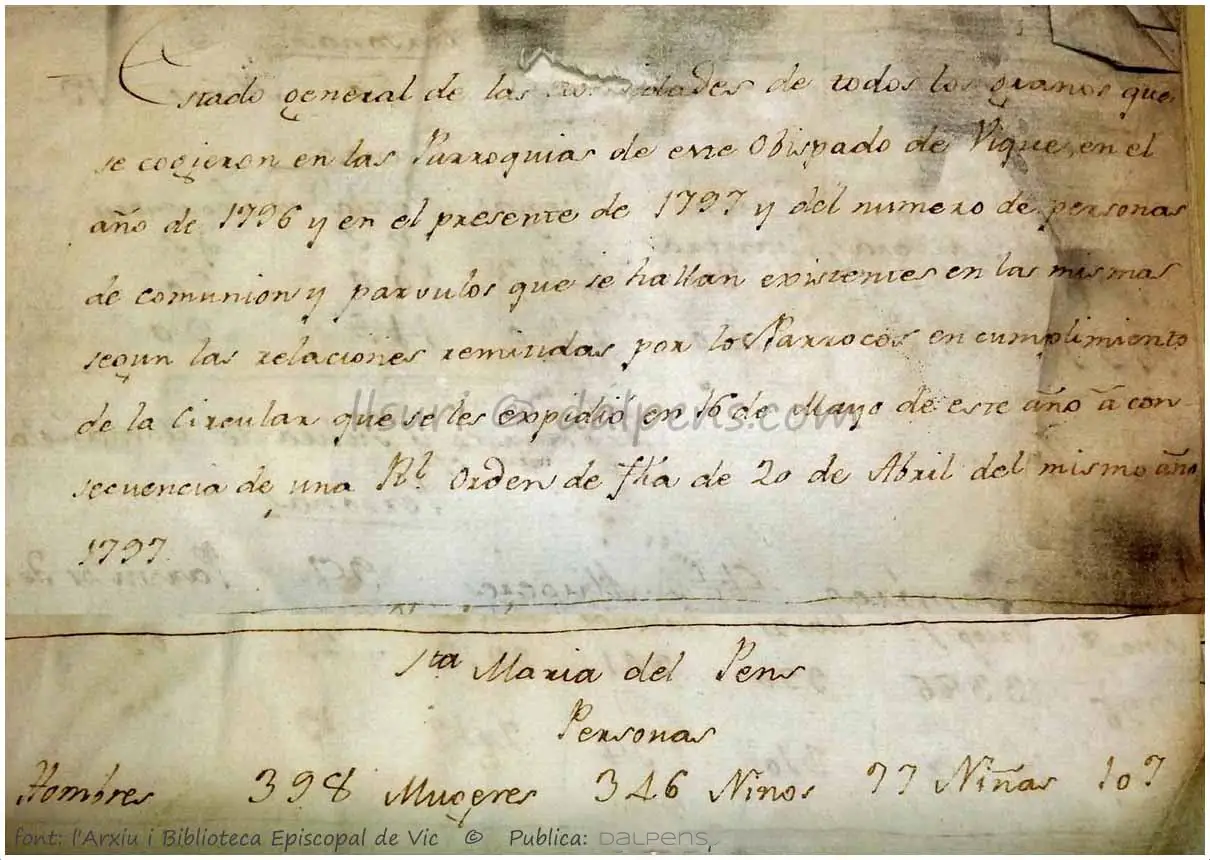 Estado general de las dades de todos los granos que
se cogieron en las Parroquias de este Obispado de Vique, en el
año de 1796 y en el presente de 1797 y del numero de personas
de comunion y parvulos que se hallan existentes en las mismas
segun las relaciones remitidas por los Parrocos en cumplimiento
de la Circular que se les expidió en 16 de Mayo de este año á con-
secuencia de una Rl Orden de fha de 20 de Abril del mismo año
1797.
Sta Maria del Pens
Personas
Hombres 398 Mugeres 346 Niños 77 Niñas 107
font: l'Arxiu i Biblioteca Episcopal de Vic © Publica: DALPENS